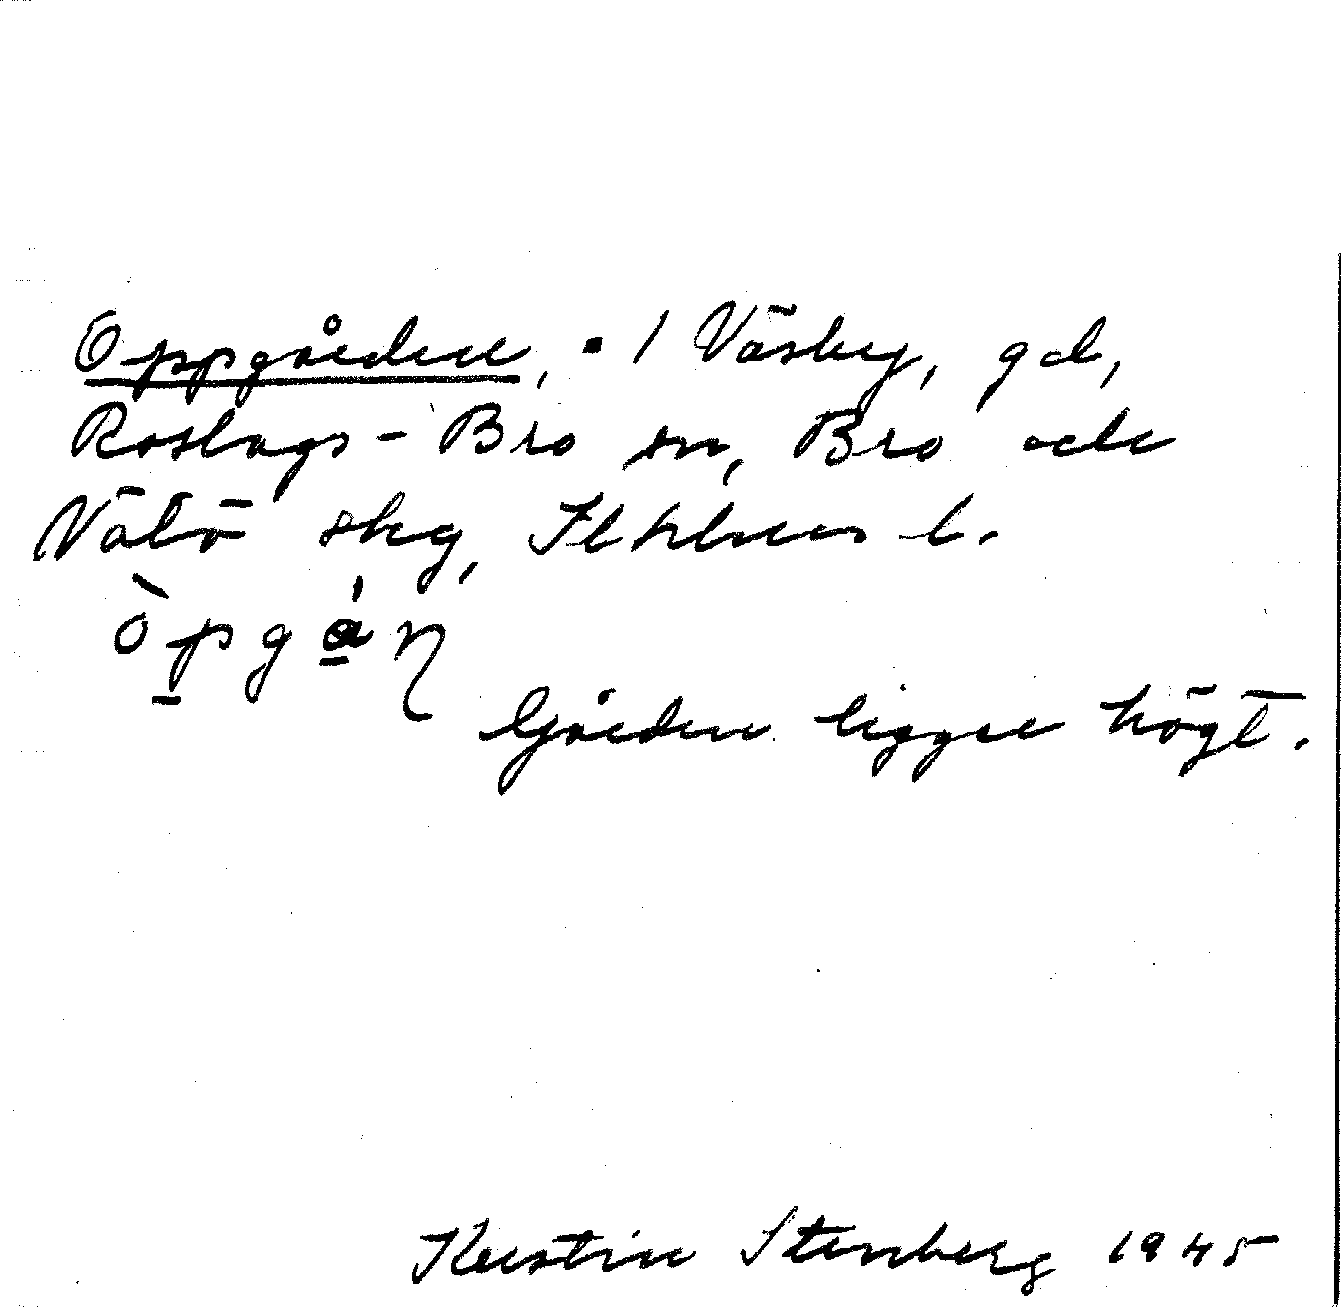 Oppgården, ▪ 1 Väsby, gd,
Roslags-Bro sn, Bro och
Vätö skg, Sthlms l.
òpgán
Gården ligger högt.
Kerstin Stenberg 1945